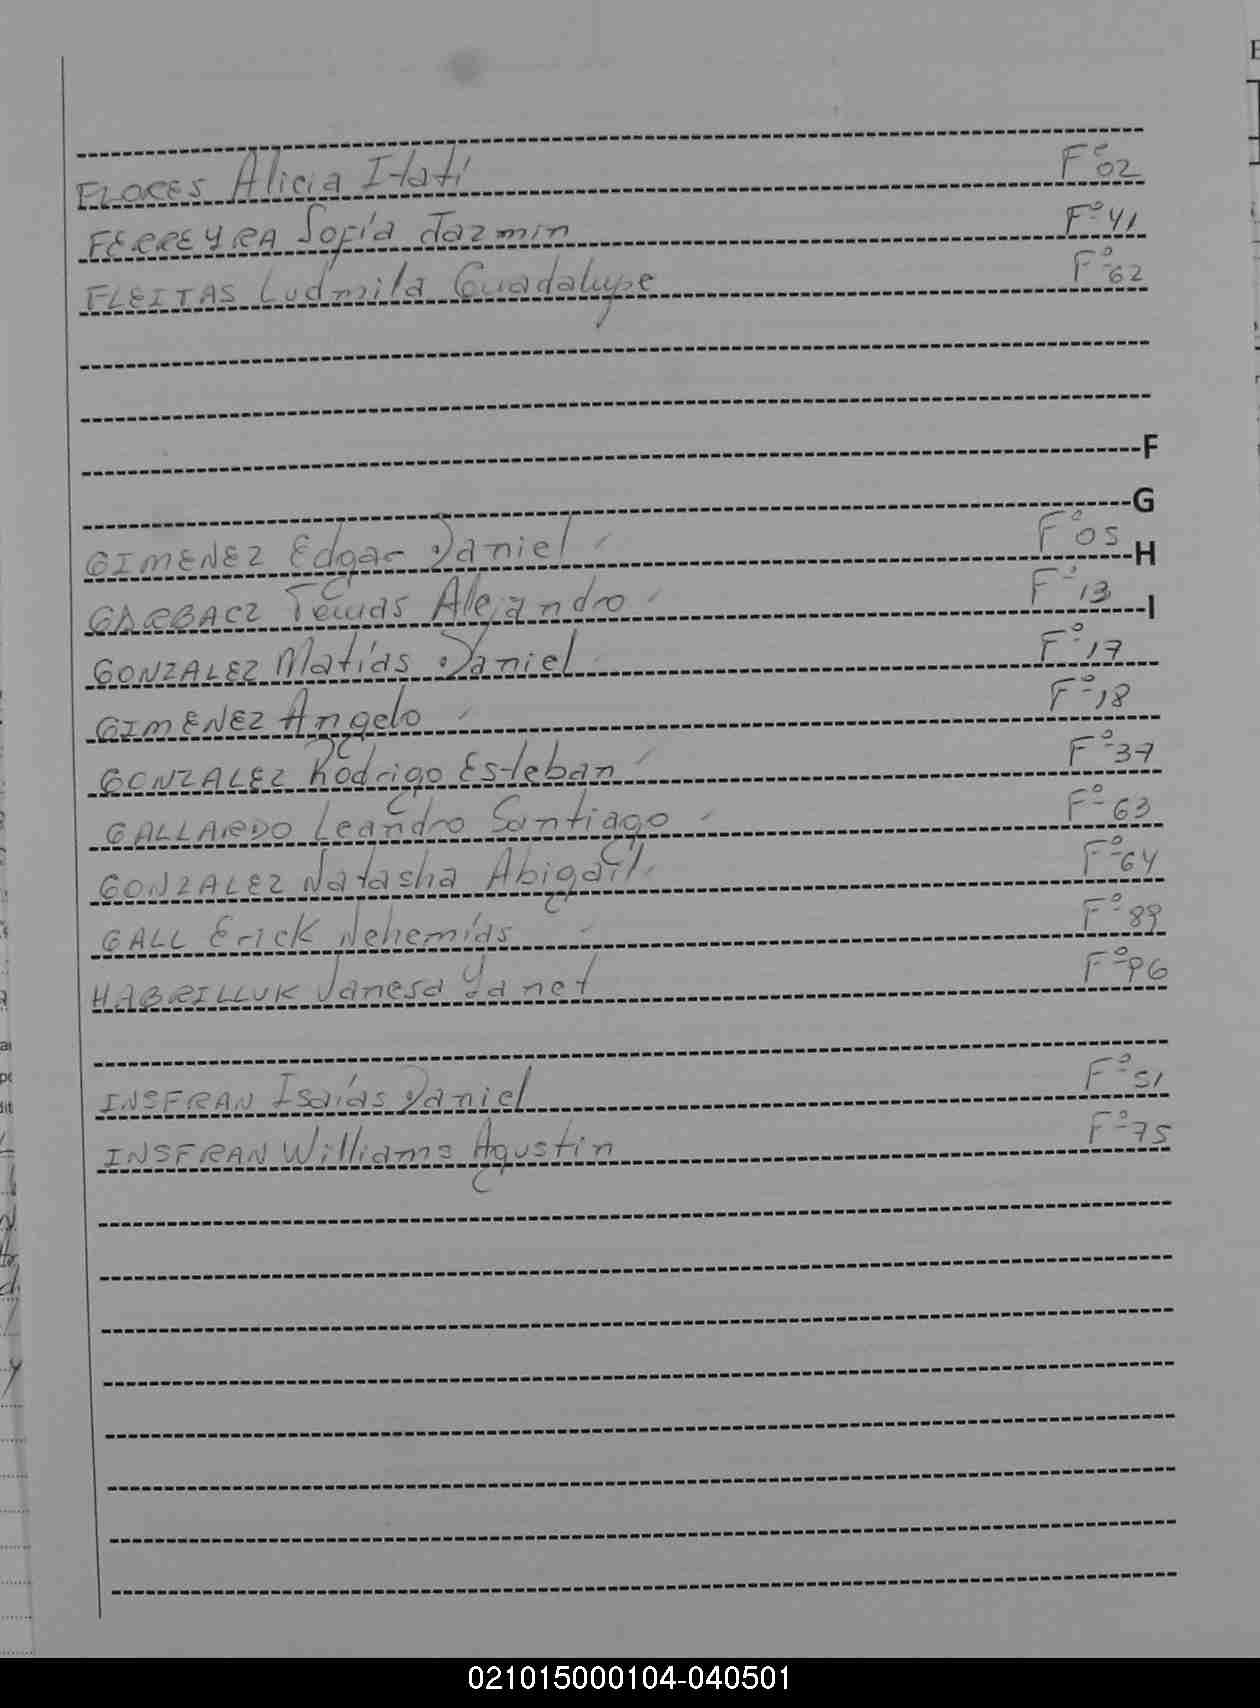 FLORES Alicia Itatí Fº 02
FERREYRA Sofía Jazmin Fº 41
FLEITAS Ludmila Guadalupe Fº 62
F
G
GIMENEZ Edgar Daniel Fº 05
H
GARBACZ Alejandro Fº 13
I
GONZALEZ Matías Daniel Fº 17
GIMENEZ Angelo Fº 18
GONZALEZ Rodrigo Esteban Fº 37
GALLARDO Leandro Santiago Fº 63
GONZALEZ Natasha Abigail Fº 64
GALL Erick Nehemías Fº 89
HABRILLUK Vanesa Yanet Fº 96
INSFRAN Isaías Daniel Fº 51
INSFRAN Williams Agustin Fº 75
021015000104-040501